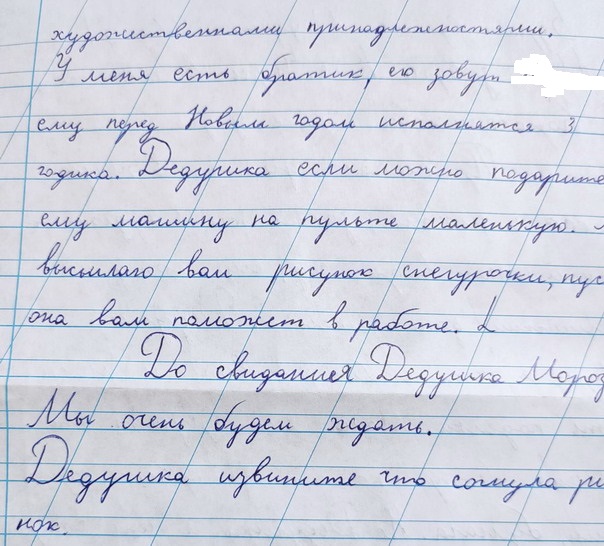 художественными принадлежностями.
У меня есть братик, его зовут
ему перед Новым годом исполнится 3
годика. Дедушка если можно подарите
ему машину на пульте маленькую.
высылаю вам рисунок снегурочки, пус
она вам поможет в работе.
До свидания Дедушка Мороз
Мы очень будем ждать.
Дедушка извините что согнула ри
нок.